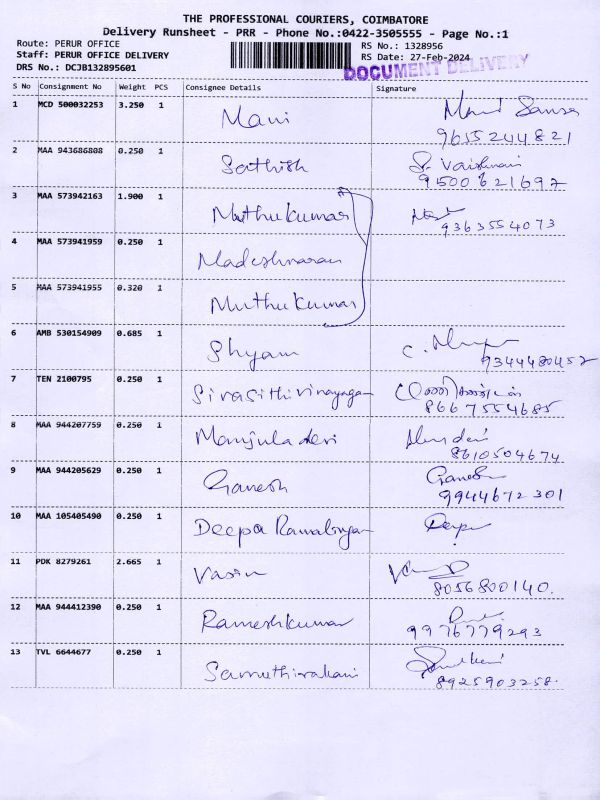 THE PROFESSIONAL COURIERS, COIMBATORE
Delivery Runsheet - PRR - Phone No.:0422-3505555 - Page No.:1
Route: PERUR OFFICE
RS No.: 1328956
Staff: PERUR OFFICE DELIVERY
RS Date: 27-Feb-2024
DRS No.: DCJB132895601
DOCUMENT DELIVERY
S No Consignment No Weight PCS Consignee Details Signature
1 MCD 500032253 3.250 1 Mani Mani
9655244821
2 MAA 943686808 0.250 1 Sathish S. Vaishnavi
9500621697
3 MAA 573942163 1.900 1 Muthukumar
9363554073
4 MAA 573941959 0.250 1 Madeshwaran
5 MAA 573941955 0.320 1 Muthukumar
6 AMB 530154909 0.685 1 Shyam
9344480457
7 TEN 2100795 0.250 1 Sivasithivinayagan
8667554685
8 MAA 944207759 0.250 1 Manjula devi
8610504674
9 MAA 944205629 0.250 1 Ganesh Ganesh
9944672301
10 MAA 105405490 0.250 1 Deepa
11 PDK 8279261 2.665 1
8056800140.
12 MAA 944412390 0.250 1 Rameshkumar
9976779293
13 TVL 6644677 0.250 1 Samuthirakani
8925903258.